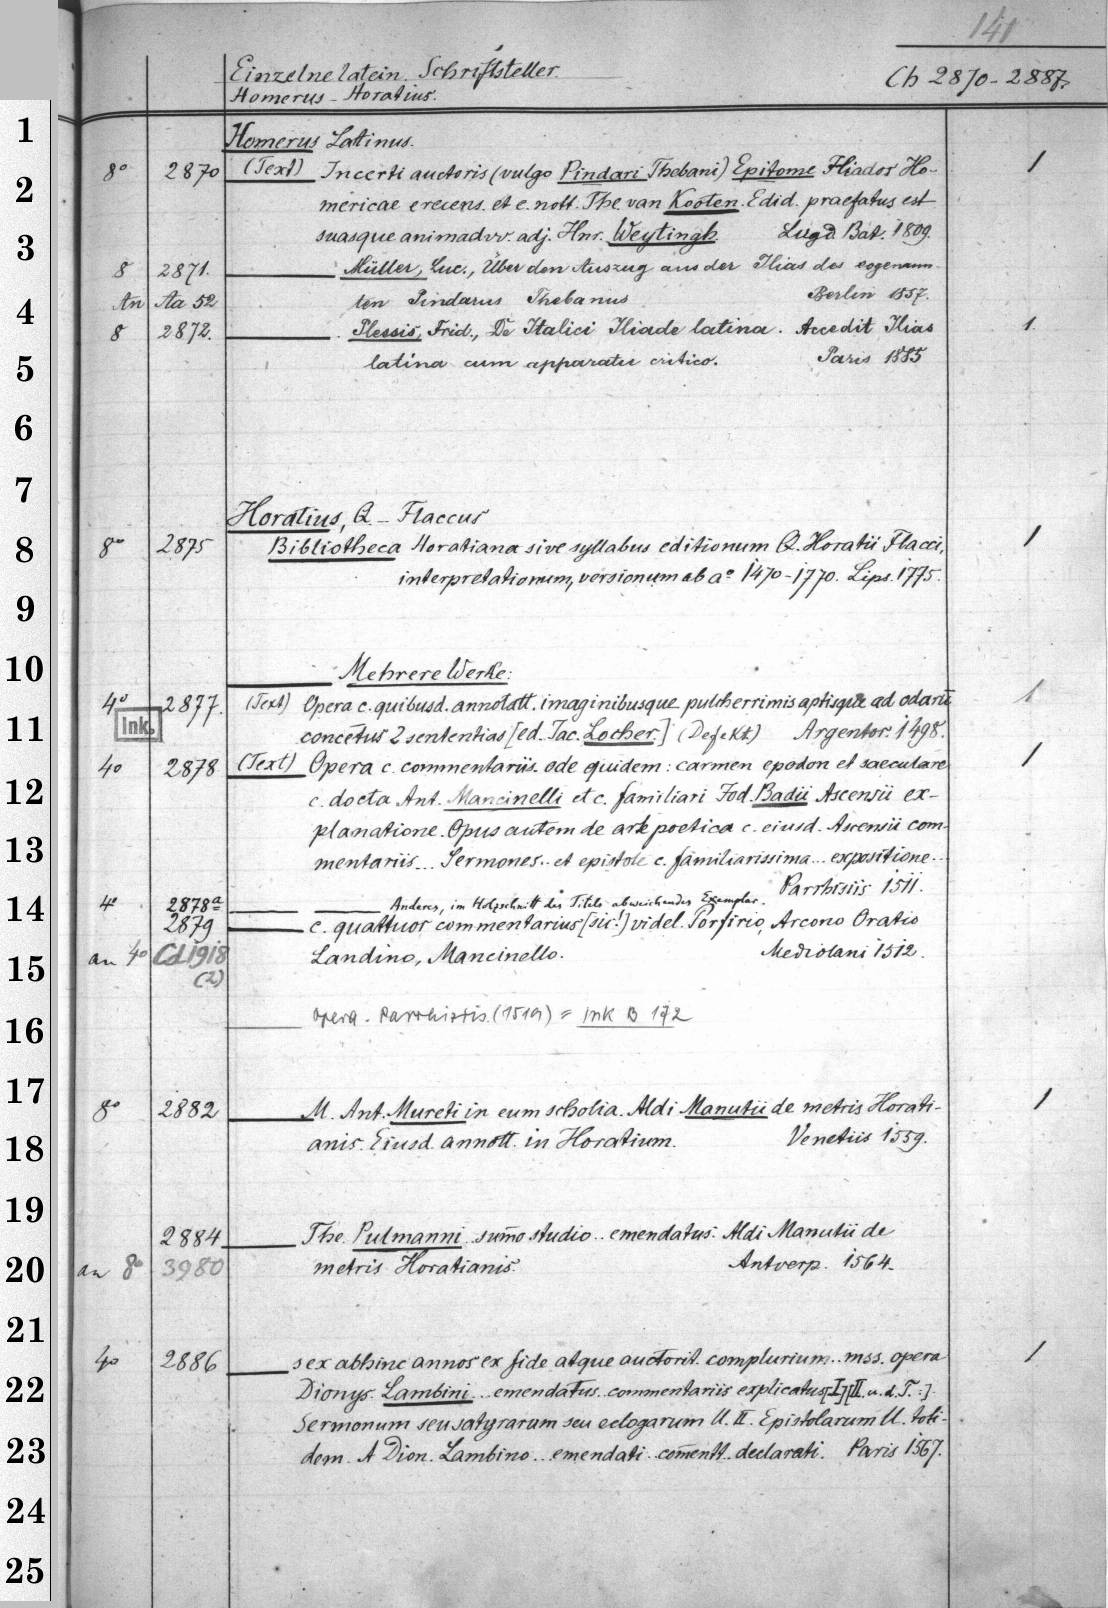 141
Einzelne latein. Schriftsteller.
Homerus - Horatius.
Ch 2870-2887.
1
Homerus Latinus.
8° 2870 (Text) Incerti auctoris (vulgo Pindari Thebani) Epitome Iliados Ho-
2
mericae e recens. et c. nott. The van Kooten. Edid. praefatus est
3
suasque animadvv. adj. Hnr. Weytingh. Lugd. Bat. 1809.
8 2871. Müller, Luc., Über den Auszug aus der Ilias des sogenann-
4
An Aa 52 ten Pindarus Thebanus Berlin 1857.
8 2872. Plessis, Frid., De Italici Iliade latina. Accedit Ilias
5
latina cum apparatu critico. Paris 1885
6
7
Horatius, Q. - Flaccus
8
8° 2875 Bibliotheca Horatiana sive syllabus editionum Q. Horatii Flacci,
interpretationum, versionum ab a° 1470-1770. Lips. 1775.
9
10
Mehrere Werke:
4° 2877. (Text) Opera c. quibusd. annotatt. imaginibusque pulcherrimis aptisque ad odarū
11
Ink. concētus 2 sententias [ed. Jac. Locher.] (Defekt) Argentor. 1498.
4° 2878 (Text) Opera c. commentariis. ode quidem: carmen epodon et saeculare
12
c. docta Ant. Mancinelli et c. familiari Jod. Badii Ascensii ex-
planatione. Opus autem de arte poetica c. eiusd. Ascensii com-
13
mentariis... Sermones.. et epistole c. familiarissima... expositione..
Parrhisiis 1511.
14
4° 2878a Anderes, im Holzschnitt des Titels abweichendes Exemplar.
2879 c. quattuor commentarius [sic!] videl. Porfirio, Arcono Oratio
15
an 4° Cd 1918 Landino, Mancinello. Mediolani 1512.
(2)
16
Opera. Parrhisiis. (1519) = Ink B 172
17
8° 2882 M. Ant. Mureti in eum scholia. Aldi Manutii de metris Horati-
18
anis. Eiusd. annott. in Horatium. Venetiis 1559.
19
2884 The. Pulmanni sum̄o studio.. emendatus. Aldi Manutii de
20
an 8° 3980 metris Horatianis. Antverp. 1564.
21
4° 2886 sex abhinc annos ex fide atque auctorit. complurium.. mss. opera
22
Dionys. Lambini... emendatus.. commentariis explicatus [I] [II u. d. T.:]
Sermonum seu satyrarum seu eclogarum ll. II. Epistolarum ll. toti-
23
dem. A Dion. Lambino.. emendati. com̄entt. declarati. Paris 1567.
24
25